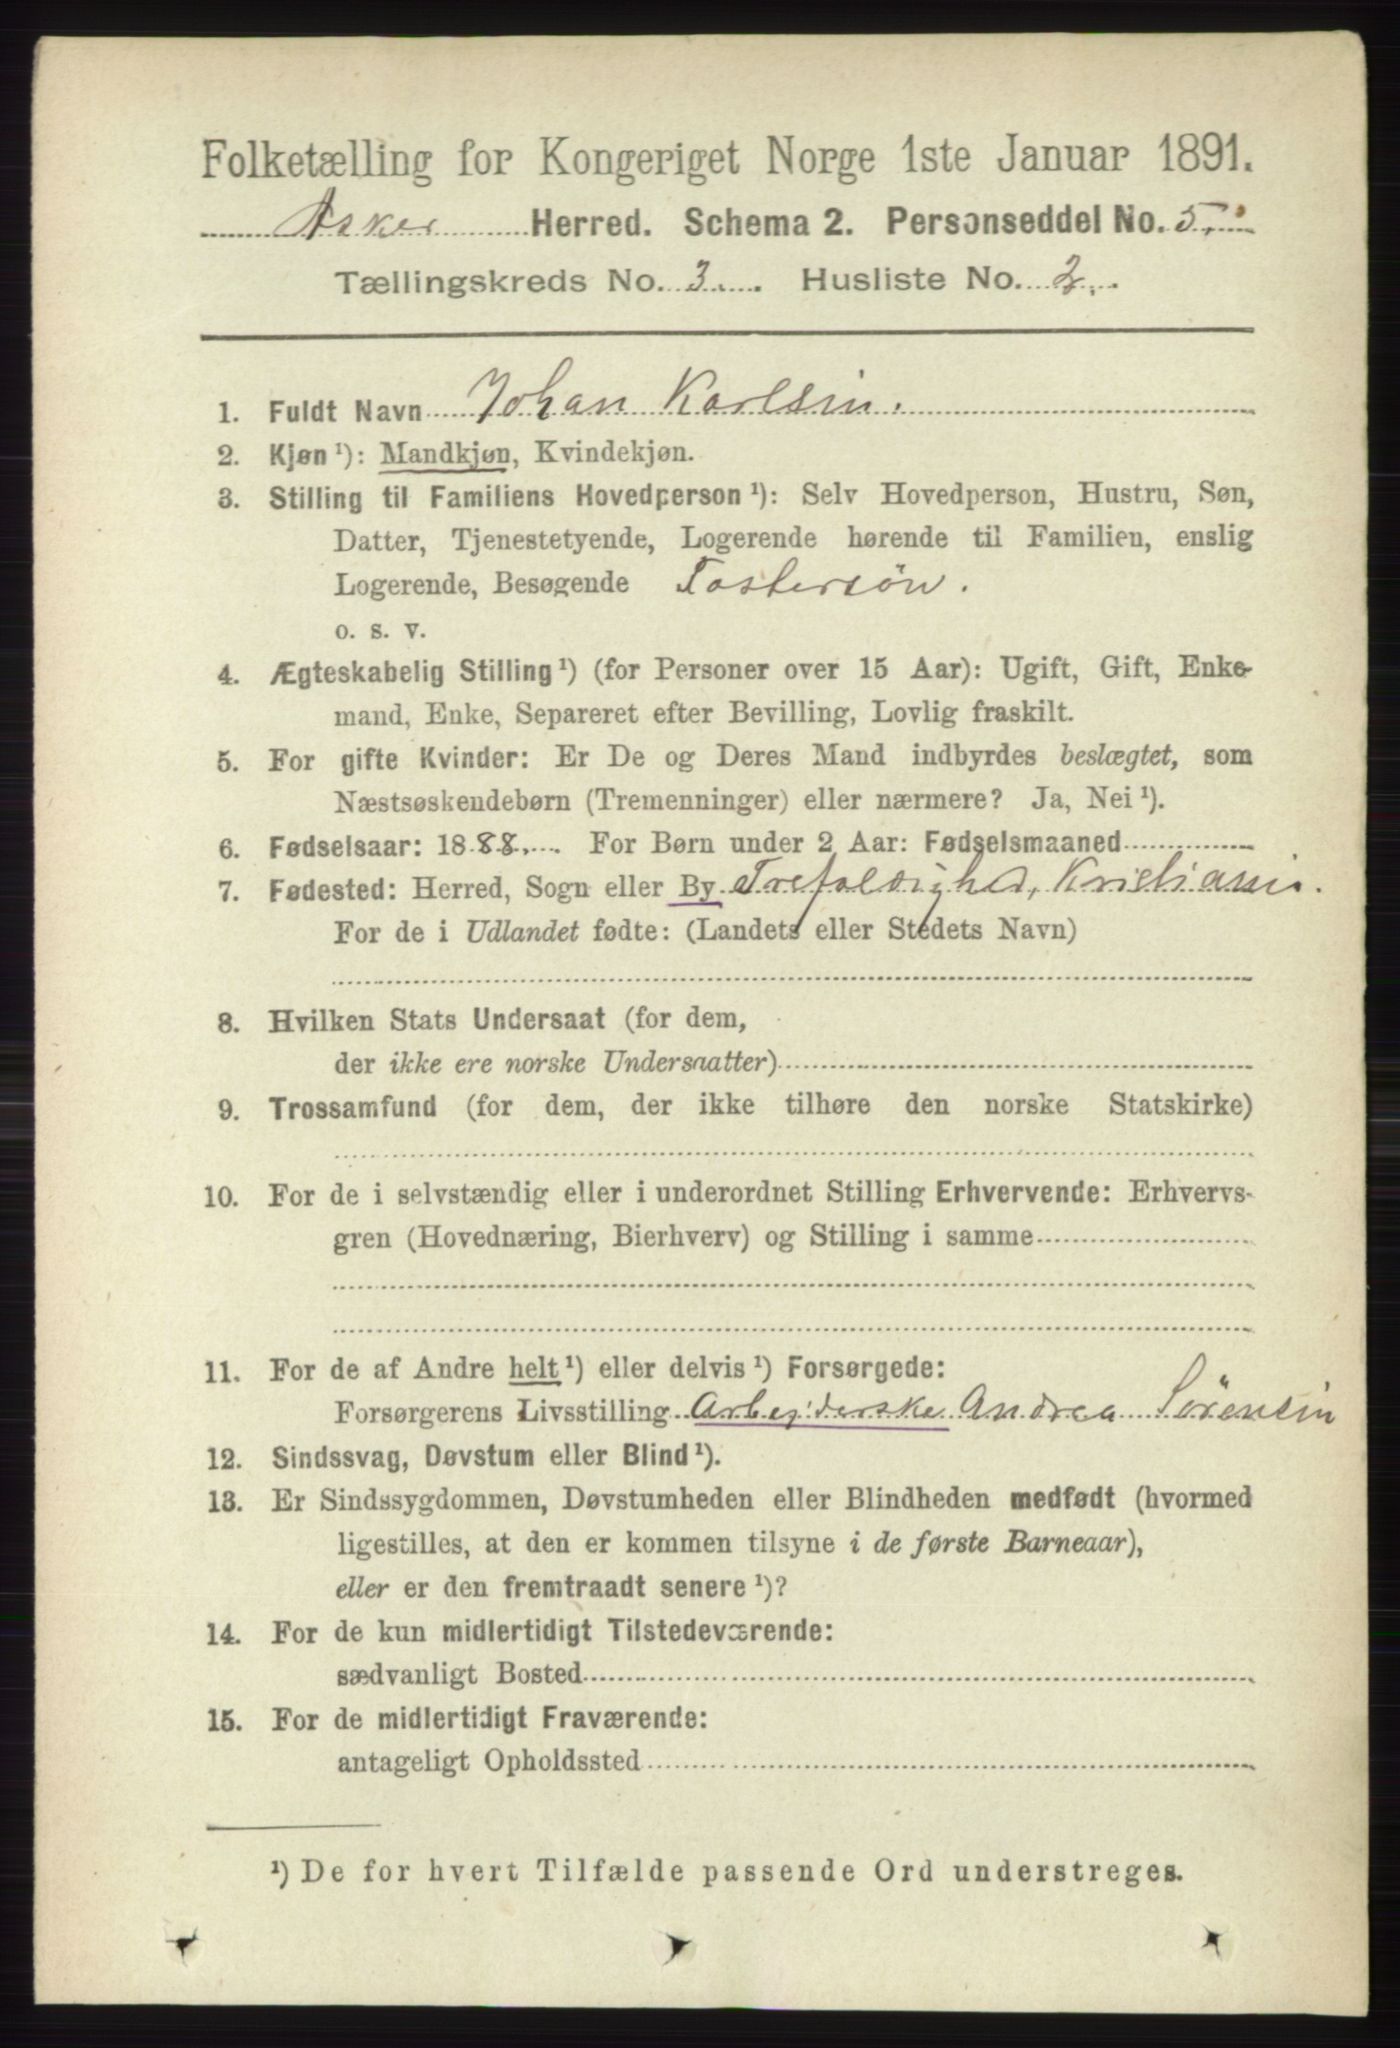 Folketælling for Kongeriget Norge 1ste Januar 1891.
Asker Herred. Schema 2. Personseddel No. 5.
Tællingskreds No. 3. Husliste No. 2.
1. Fuldt Navn Johan Karlsen.
2. Kjøn ¹): Mandkjøn, Kvindekjøn.
3. Stilling til Familiens Hovedperson ¹): Selv Hovedperson, Hustru, Søn,
Datter, Tjenestetyende, Logerende hørende til Familien, enslig
Logerende, Besøgende Fostersøn.
o. s. v.
4. Ægteskabelig Stilling ¹) (for Personer over 15 Aar): Ugift, Gift, Enke-
mand, Enke, Separeret efter Bevilling, Lovlig fraskilt.
5. For gifte Kvinder: Er De og Deres Mand indbyrdes beslægtet, som
Næstsøskendebørn (Tremenninger) eller nærmere? Ja, Nei ¹).
6. Fødselsaar: 1888. For Børn under 2 Aar: Fødselsmaaned
7. Fødested: Herred, Sogn eller By Trefoldighed, Kristiania.
For de i Udlandet fødte: (Landets eller Stedets Navn)
8. Hvilken Stats Undersaat (for dem,
der ikke ere norske Undersaatter)
9. Trossamfund (for dem, der ikke tilhøre den norske Statskirke)
10. For de i selvstændig eller i underordnet Stilling Erhvervende: Erhvervs-
gren (Hovednæring, Bierhverv) og Stilling i samme
11. For de af Andre helt ¹) eller delvis ¹) Forsørgede:
Forsørgerens Livsstilling Arbejderske Andrea Sörensen
12. Sindssvag, Døvstum eller Blind ¹).
13. Er Sindssygdommen, Døvstumheden eller Blindheden medfødt (hvormed
ligestilles, at den er kommen tilsyne i de første Barneaar),
eller er den fremtraadt senere ¹)?
14. For de kun midlertidigt Tilstedeværende:
sædvanligt Bosted
15. For de midlertidigt Fraværende:
antageligt Opholdssted
¹) De for hvert Tilfælde passende Ord understreges.